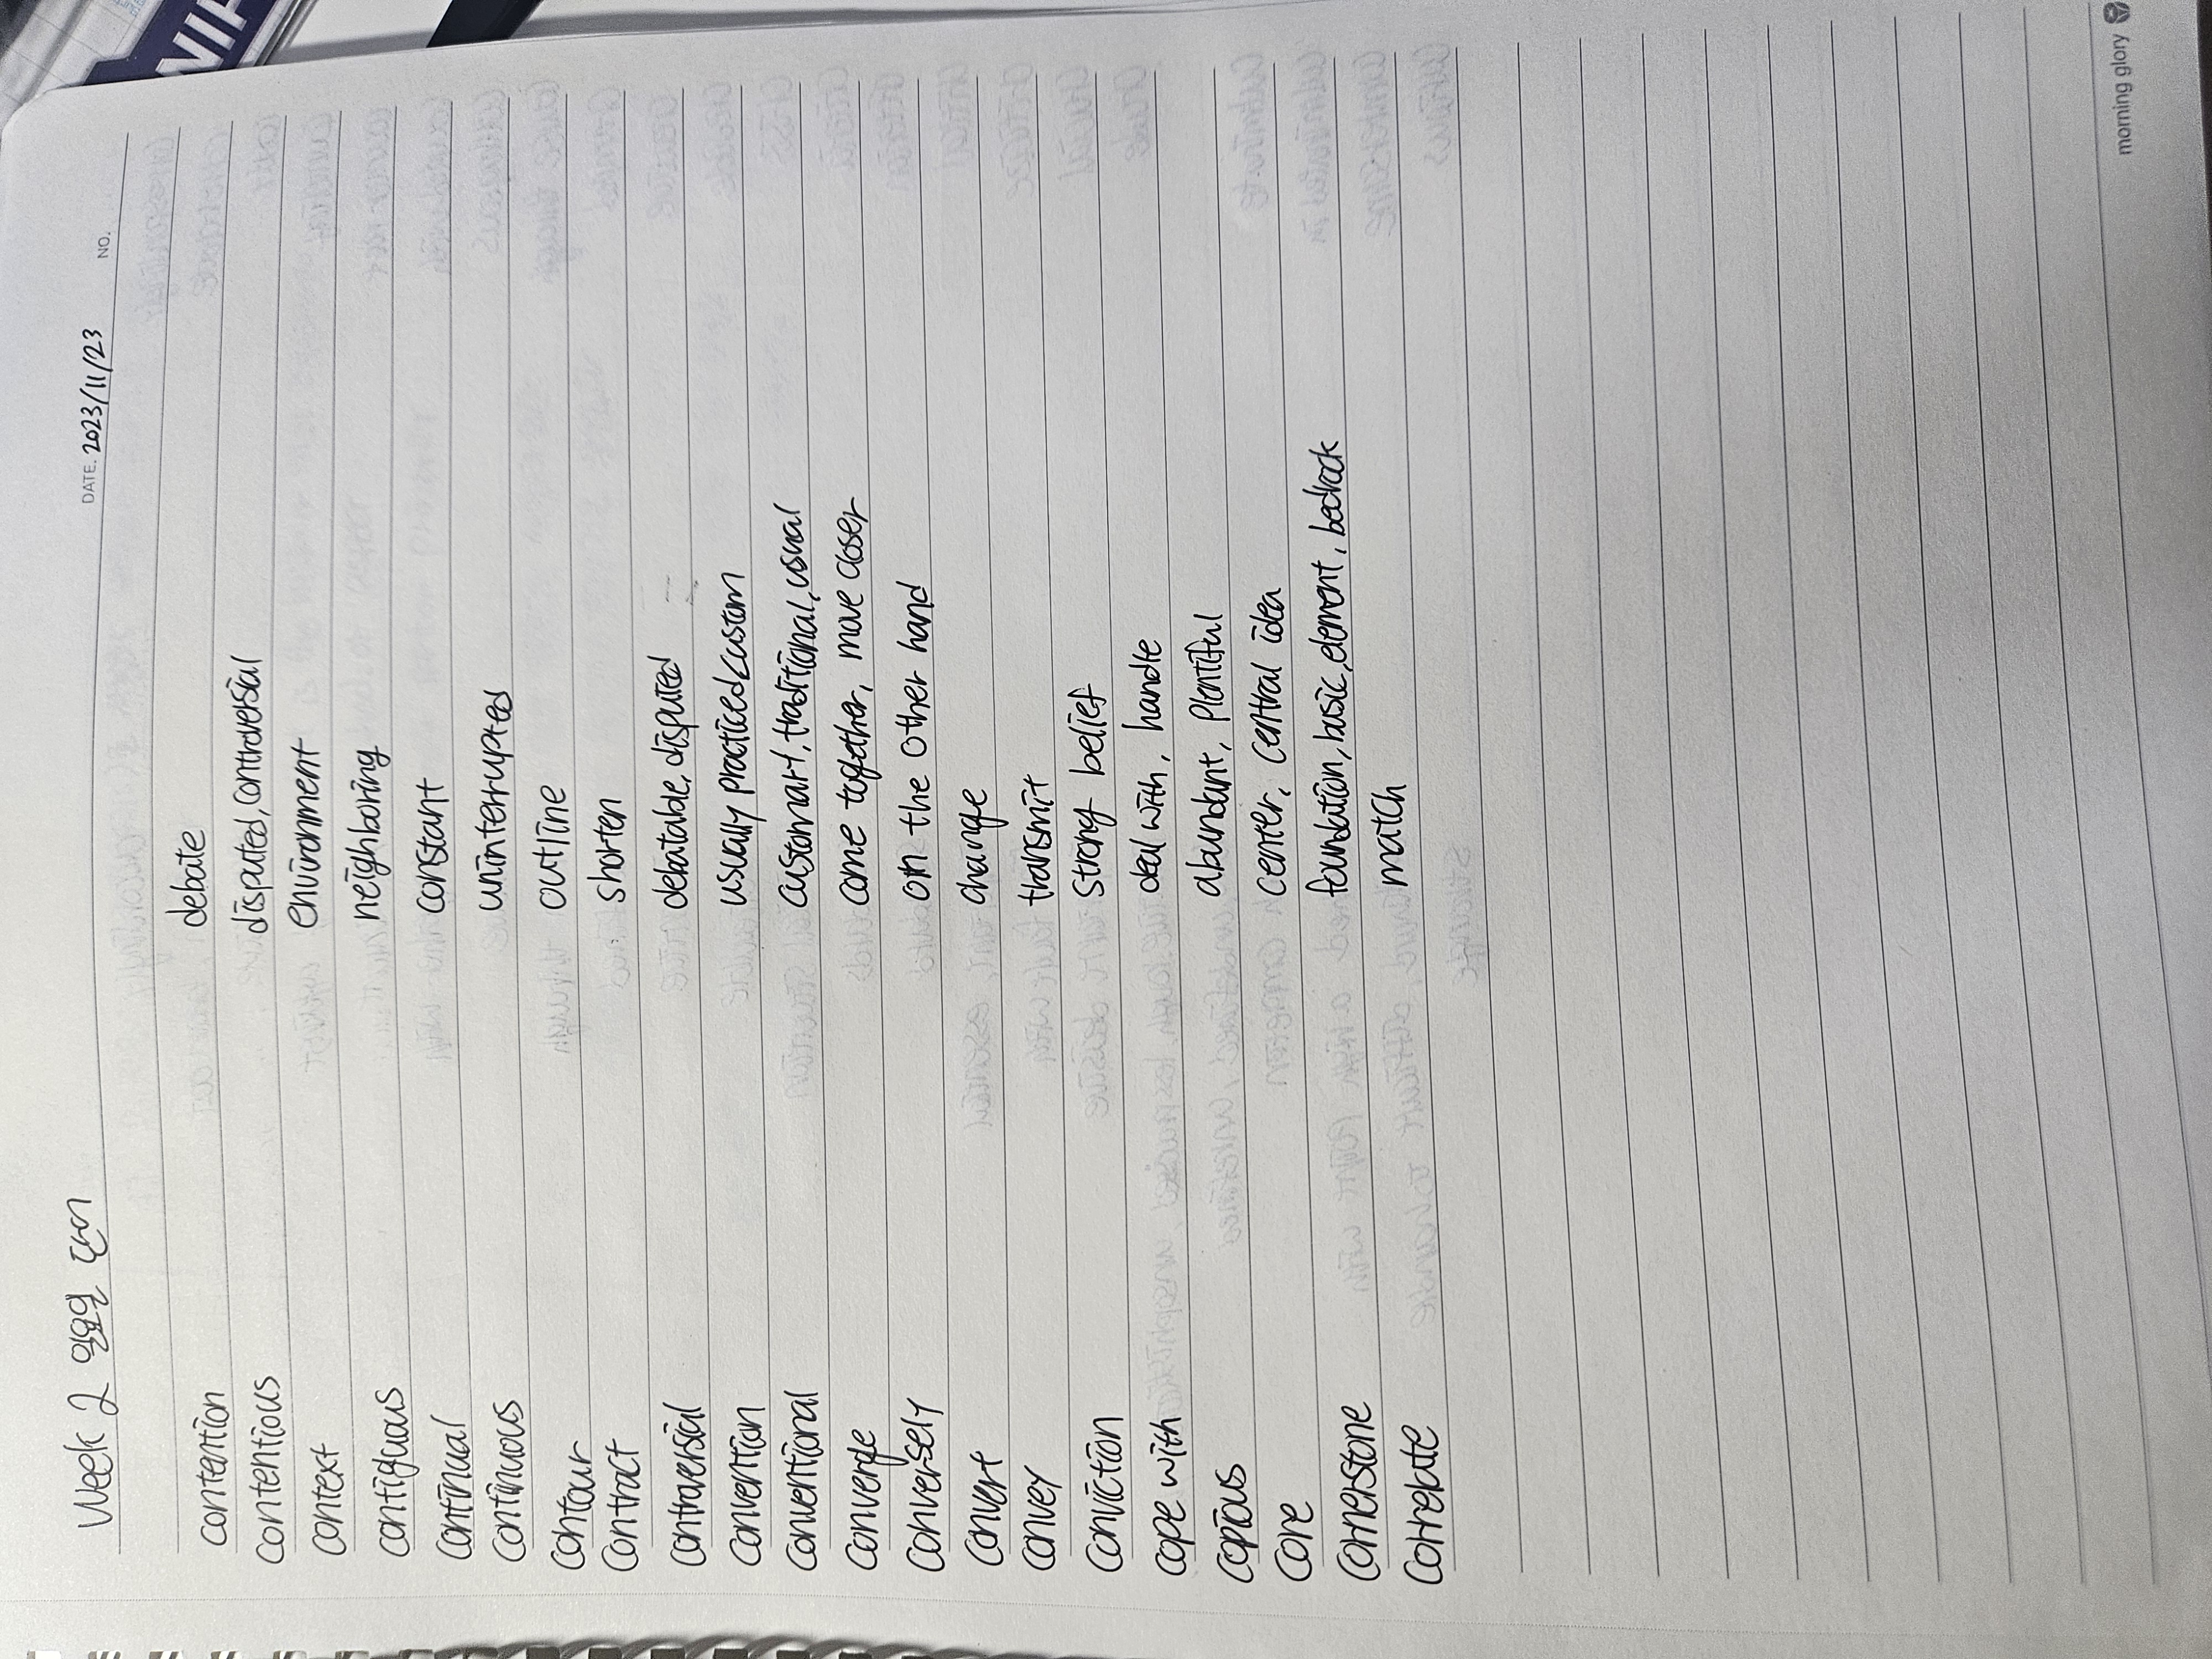 NIP
Week 2 일요일 단어 DATE. 2023/11/23 NO.
contention debate
contentious disputed, controversial
context environment
contiguous neighboring
continual constant
continuous uninterrupted
contour outline
contract shorten
controversial debatable, disputed
convention usually practiced custom
conventional customary, traditional, usual
converge come together, move closer
conversely on the other hand
convert change
convey transmit
conviction strong belief
cope with deal with, handle
copious abundant, plentiful
core center, central idea
cornerstone foundation, basic, element, bedrock
correlate match
morning glory